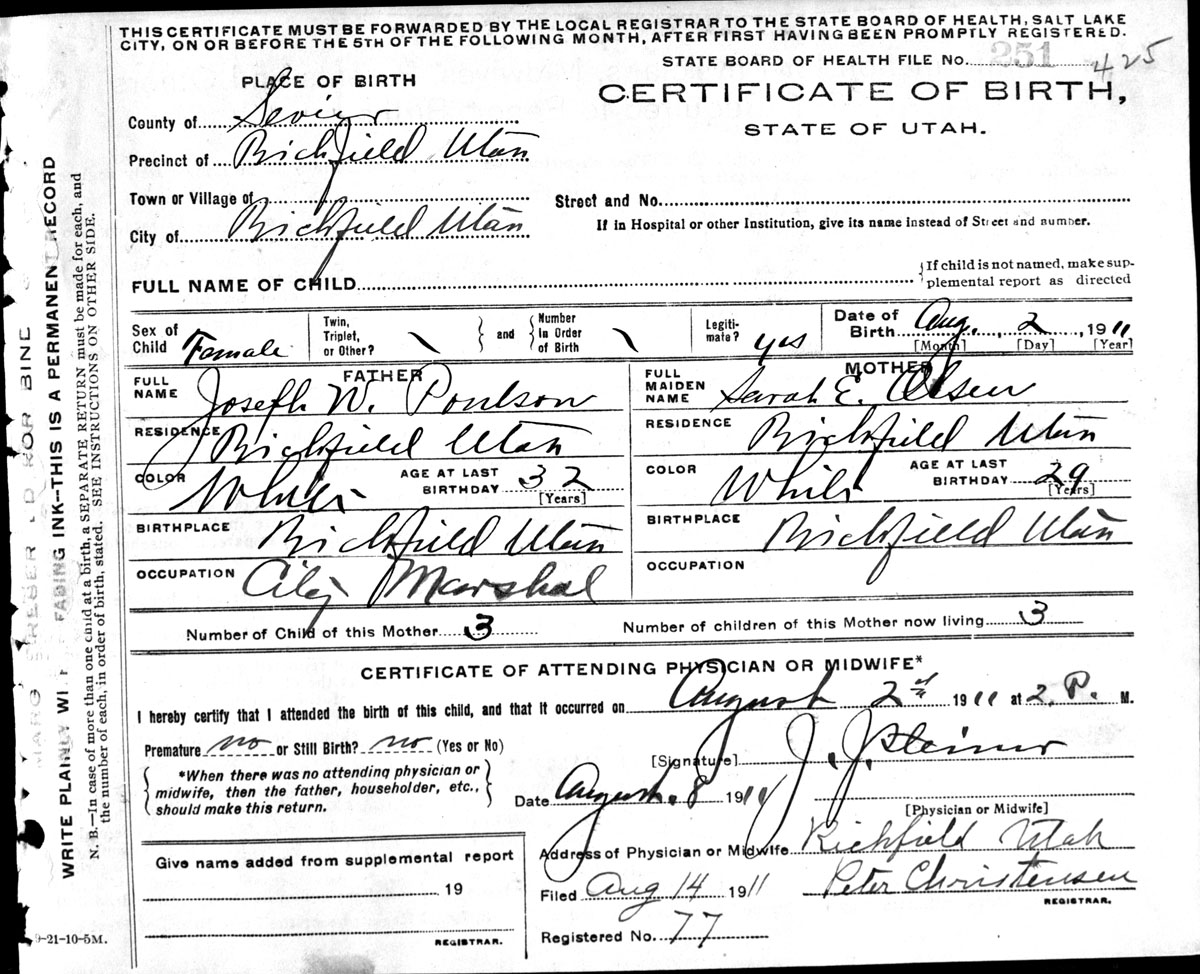 THIS CERTIFICATE MUST BE FORWARDED BY THE LOCAL REGISTRAR TO THE STATE BOARD OF HEALTH, SALT LAKE
CITY, ON OR BEFORE THE 5TH OF THE FOLLOWING MONTH, AFTER FIRST HAVING BEEN PROMPTLY REGISTERED.
STATE BOARD OF HEALTH FILE No. 251 425
PLACE OF BIRTH
CERTIFICATE OF BIRTH,
STATE OF UTAH.
County of Sevier
Precinct of Richfield Utah
Town or Village of
Street and No.
City of Richfield Utah
If in Hospital or other Institution, give its name instead of Street and number.
FULL NAME OF CHILD
If child is not named, make sup-
plemental report as directed
Sex of Child Female
Twin, Triplet, or Other? \ and Number in Order of Birth \
Legiti-mate? yes
Date of Birth Aug. 2, 1911
[Month] [Day] [Year]
FATHER
FULL NAME Joseph W. Poulson
RESIDENCE Richfield Utah
COLOR White AGE AT LAST BIRTHDAY 32
[Years]
BIRTHPLACE Richfield Utah
OCCUPATION City Marshal
MOTHER
FULL MAIDEN NAME Sarah E. Olsen
RESIDENCE Richfield Utah
COLOR White AGE AT LAST BIRTHDAY 29
[Years]
BIRTHPLACE Richfield Utah
OCCUPATION
Number of Child of this Mother 3 Number of children of this Mother now living 3
CERTIFICATE OF ATTENDING PHYSICIAN OR MIDWIFE*
I hereby certify that I attended the birth of this child, and that it occurred on August 2nd 1911 at 2 P. M.
Premature no or Still Birth? no (Yes or No)
*When there was no attending physician or
midwife, then the father, householder, etc.,
should make this return.
[Signature] J. J. Steiner
Date August. 8 1911
[Physician or Midwife]
Address of Physician or Midwife Richfield Utah
Filed Aug 14 1911 Peter Christensen
REGISTRAR.
Registered No. 77
Give name added from supplemental report
19
REGISTRAR.
-21-10-5M.
WRITE PLAINLY FADING INK--THIS IS A PERMANENT RECORD
N. B.—In case of more than one child at a birth, a SEPARATE RETURN must be made for each, and
the number of each, in order of birth, stated. SEE INSTRUCTIONS ON OTHER SIDE.